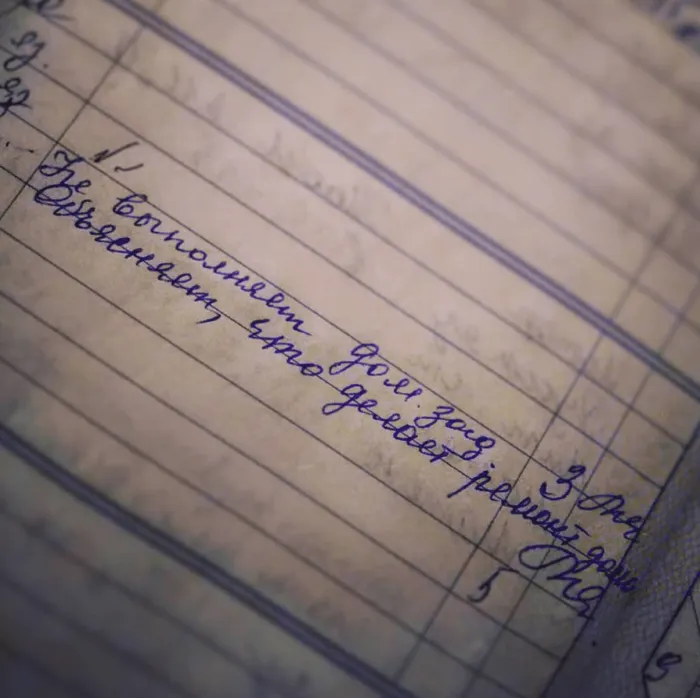 яз.
яз
Не выполняет дом. зад. 3
Объясняет, что делает ремонт дома
5